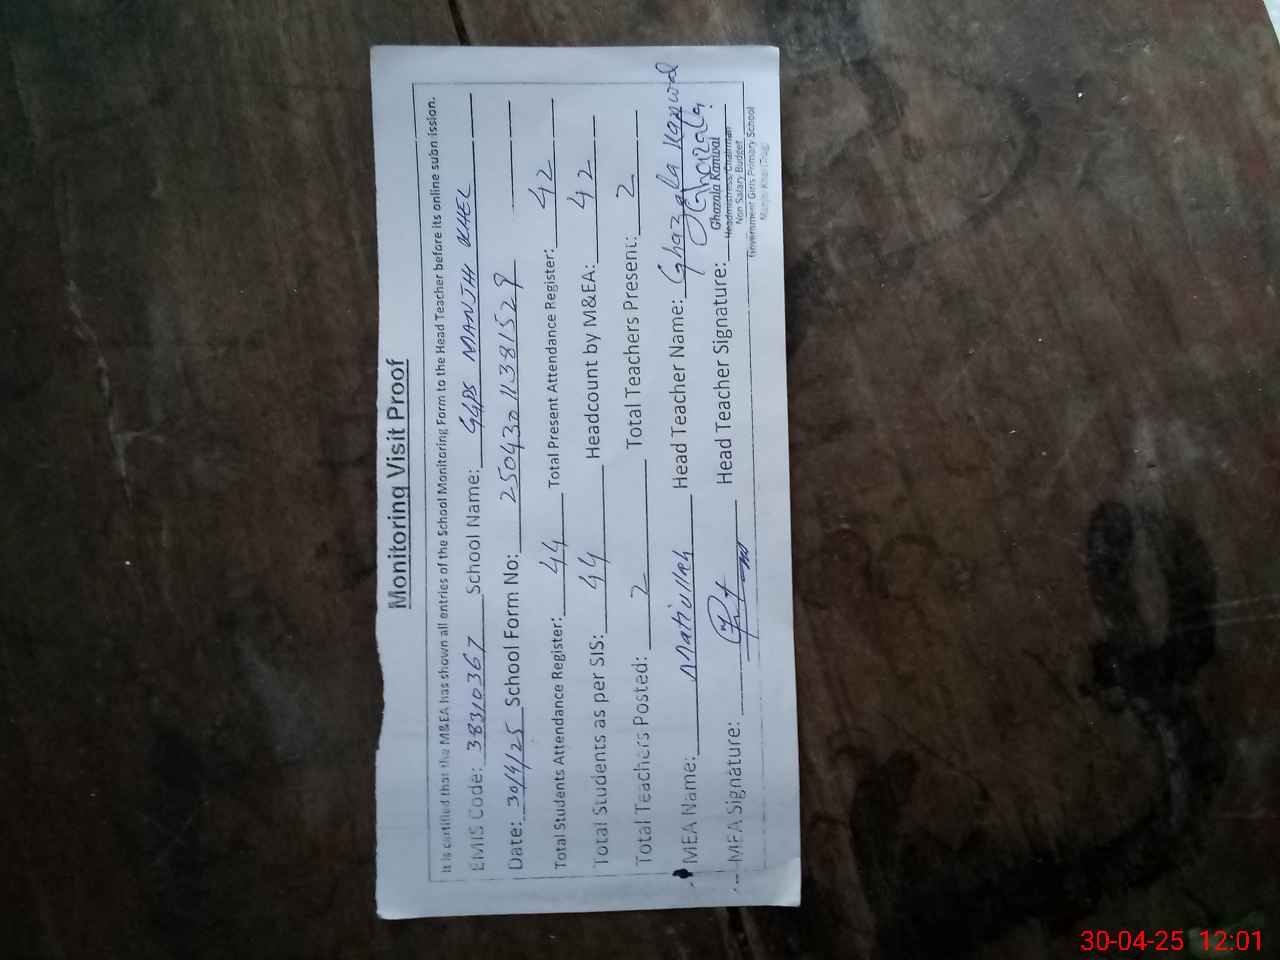 Monitoring Visit Proof
It is certified that the M&EA has shown all entries of the School Monitoring Form to the Head Teacher before its online submission.
EMIS Code: 38310367 School Name: GGPS MANJHI KHEL
Date: 30/4/25 School Form No: 25043011381529
Total Students Attendance Register: 44 Total Present Attendance Register: 42
Total Students as per SIS: 44 Headcount by M&EA: 42
Total Teachers Posted: 2 Total Teachers Present: 2
MEA Name: Matiullah Head Teacher Name: Ghazala Kanwal
MEA Signature: Head Teacher Signature: Ghazala
Ghazala Kanwal
Headmistress/Chairman
Non Salary Budget
Government Girls Primary School
30-04-25 12:01